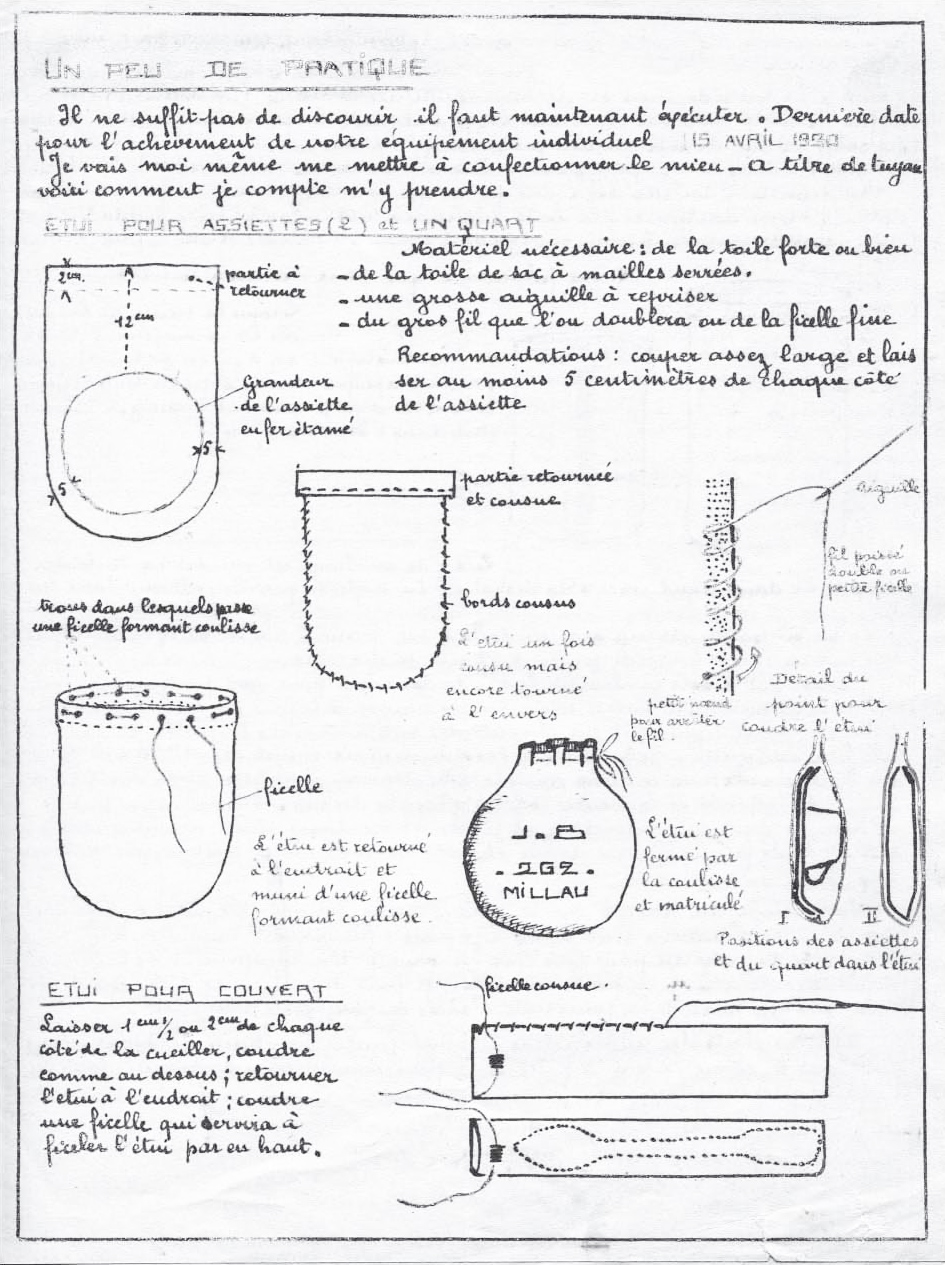 UN PEU DE PRATIQUE
Il ne suffit pas de discourir il faut maintenant éxécuter. Dernière date
pour l'achèvement de notre équipement individuel 15 AVRIL
Je vais moi même me mettre à confectionner le mieu - a titre de tuyau
voici comment je compte m'y prendre.
ETUI POUR ASSIETTES (2) et UN QUART
Matériel nécessaire : de la toile forte ou bien
- de la toile de sac à mailles serrées.
- une grosse aiguille à repriser
- du gros fil que l'on doublera ou de la ficelle fine
Recommandations : couper assez large et lais
ser au moins 5 centimètres de chaque côté
de l'assiette
2cm
partie à
retourner
12cm
Grandeur
de l'assiette
en fer étamé
5
5
partie retournée
et cousue
bords cousus
L'étui un fois
cousu mais
encore tourné
à l'envers
aiguille
fil passé
double ou
petite ficelle
petit nœud
pour arrêter
le fil
Détail du
point pour
coudre l'étui
trous dans lesquels passe
une ficelle formant coulisse
ficelle
L'étui est retourné
à l'endroit et
muni d'une ficelle
formant coulisse.
J.B
. 2G2 .
MILLAU
L'étui est
fermé par
la coulisse
et matriculé
I
II
Positions des assiettes
et du quart dans l'étui
ETUI POUR COUVERT
Laisser 1 cm 1/2 ou 2cm de chaque
côté de la cueiller, coudre
comme au dessus ; retourner
l'etui à l'endroit ; coudre
une ficelle qui servira à
ficeler l'étui par en haut.
ficelle cousue.